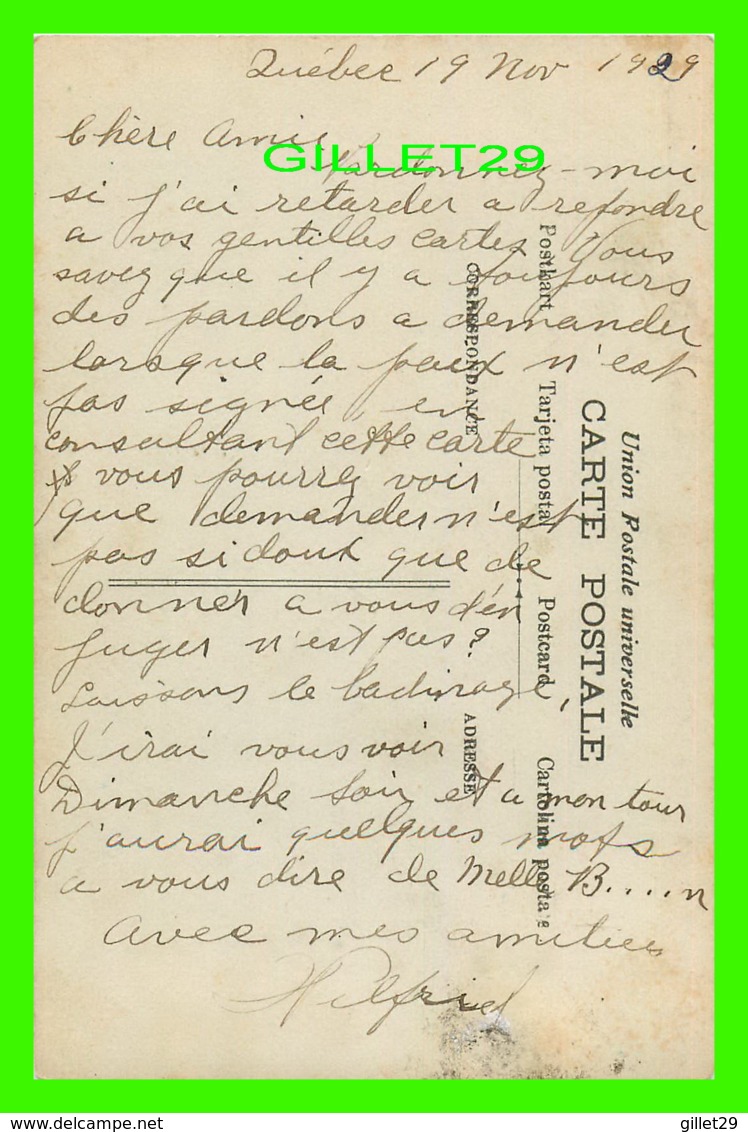 Québec 19 Nov 1929
Chère Amie
GILLET29
Pardonnez-moi
si j'ai retarder a repondre
a vos gentilles cartes. Vous
savez que il y a toujours
des pardons a demander
lorsque la paix n'est
pas signée, en
consultant cette carte
vous pourrez voir
que demander n'est
pas si doux que de
donner a vous d'en
juger n'est pas?
Laissons le badinage,
J'irai vous voir
Dimanche soir et a mon tour
j'aurai quelques mots
a vous dire de Melle B....n
Avec mes amities
Wilfrid
Union Postale universelle
CARTE POSTALE
Postkart Tarjeta postal Postcard Cartolina postale
CORRESPONDANCE
ADRESSE
delcampe.net
gillet29